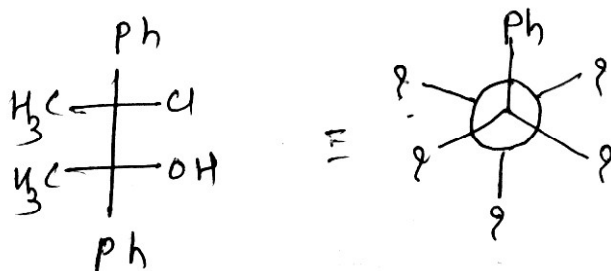 Ph
H3C Cl
H3C OH
Ph
≡
Ph
? ?
? ?
?